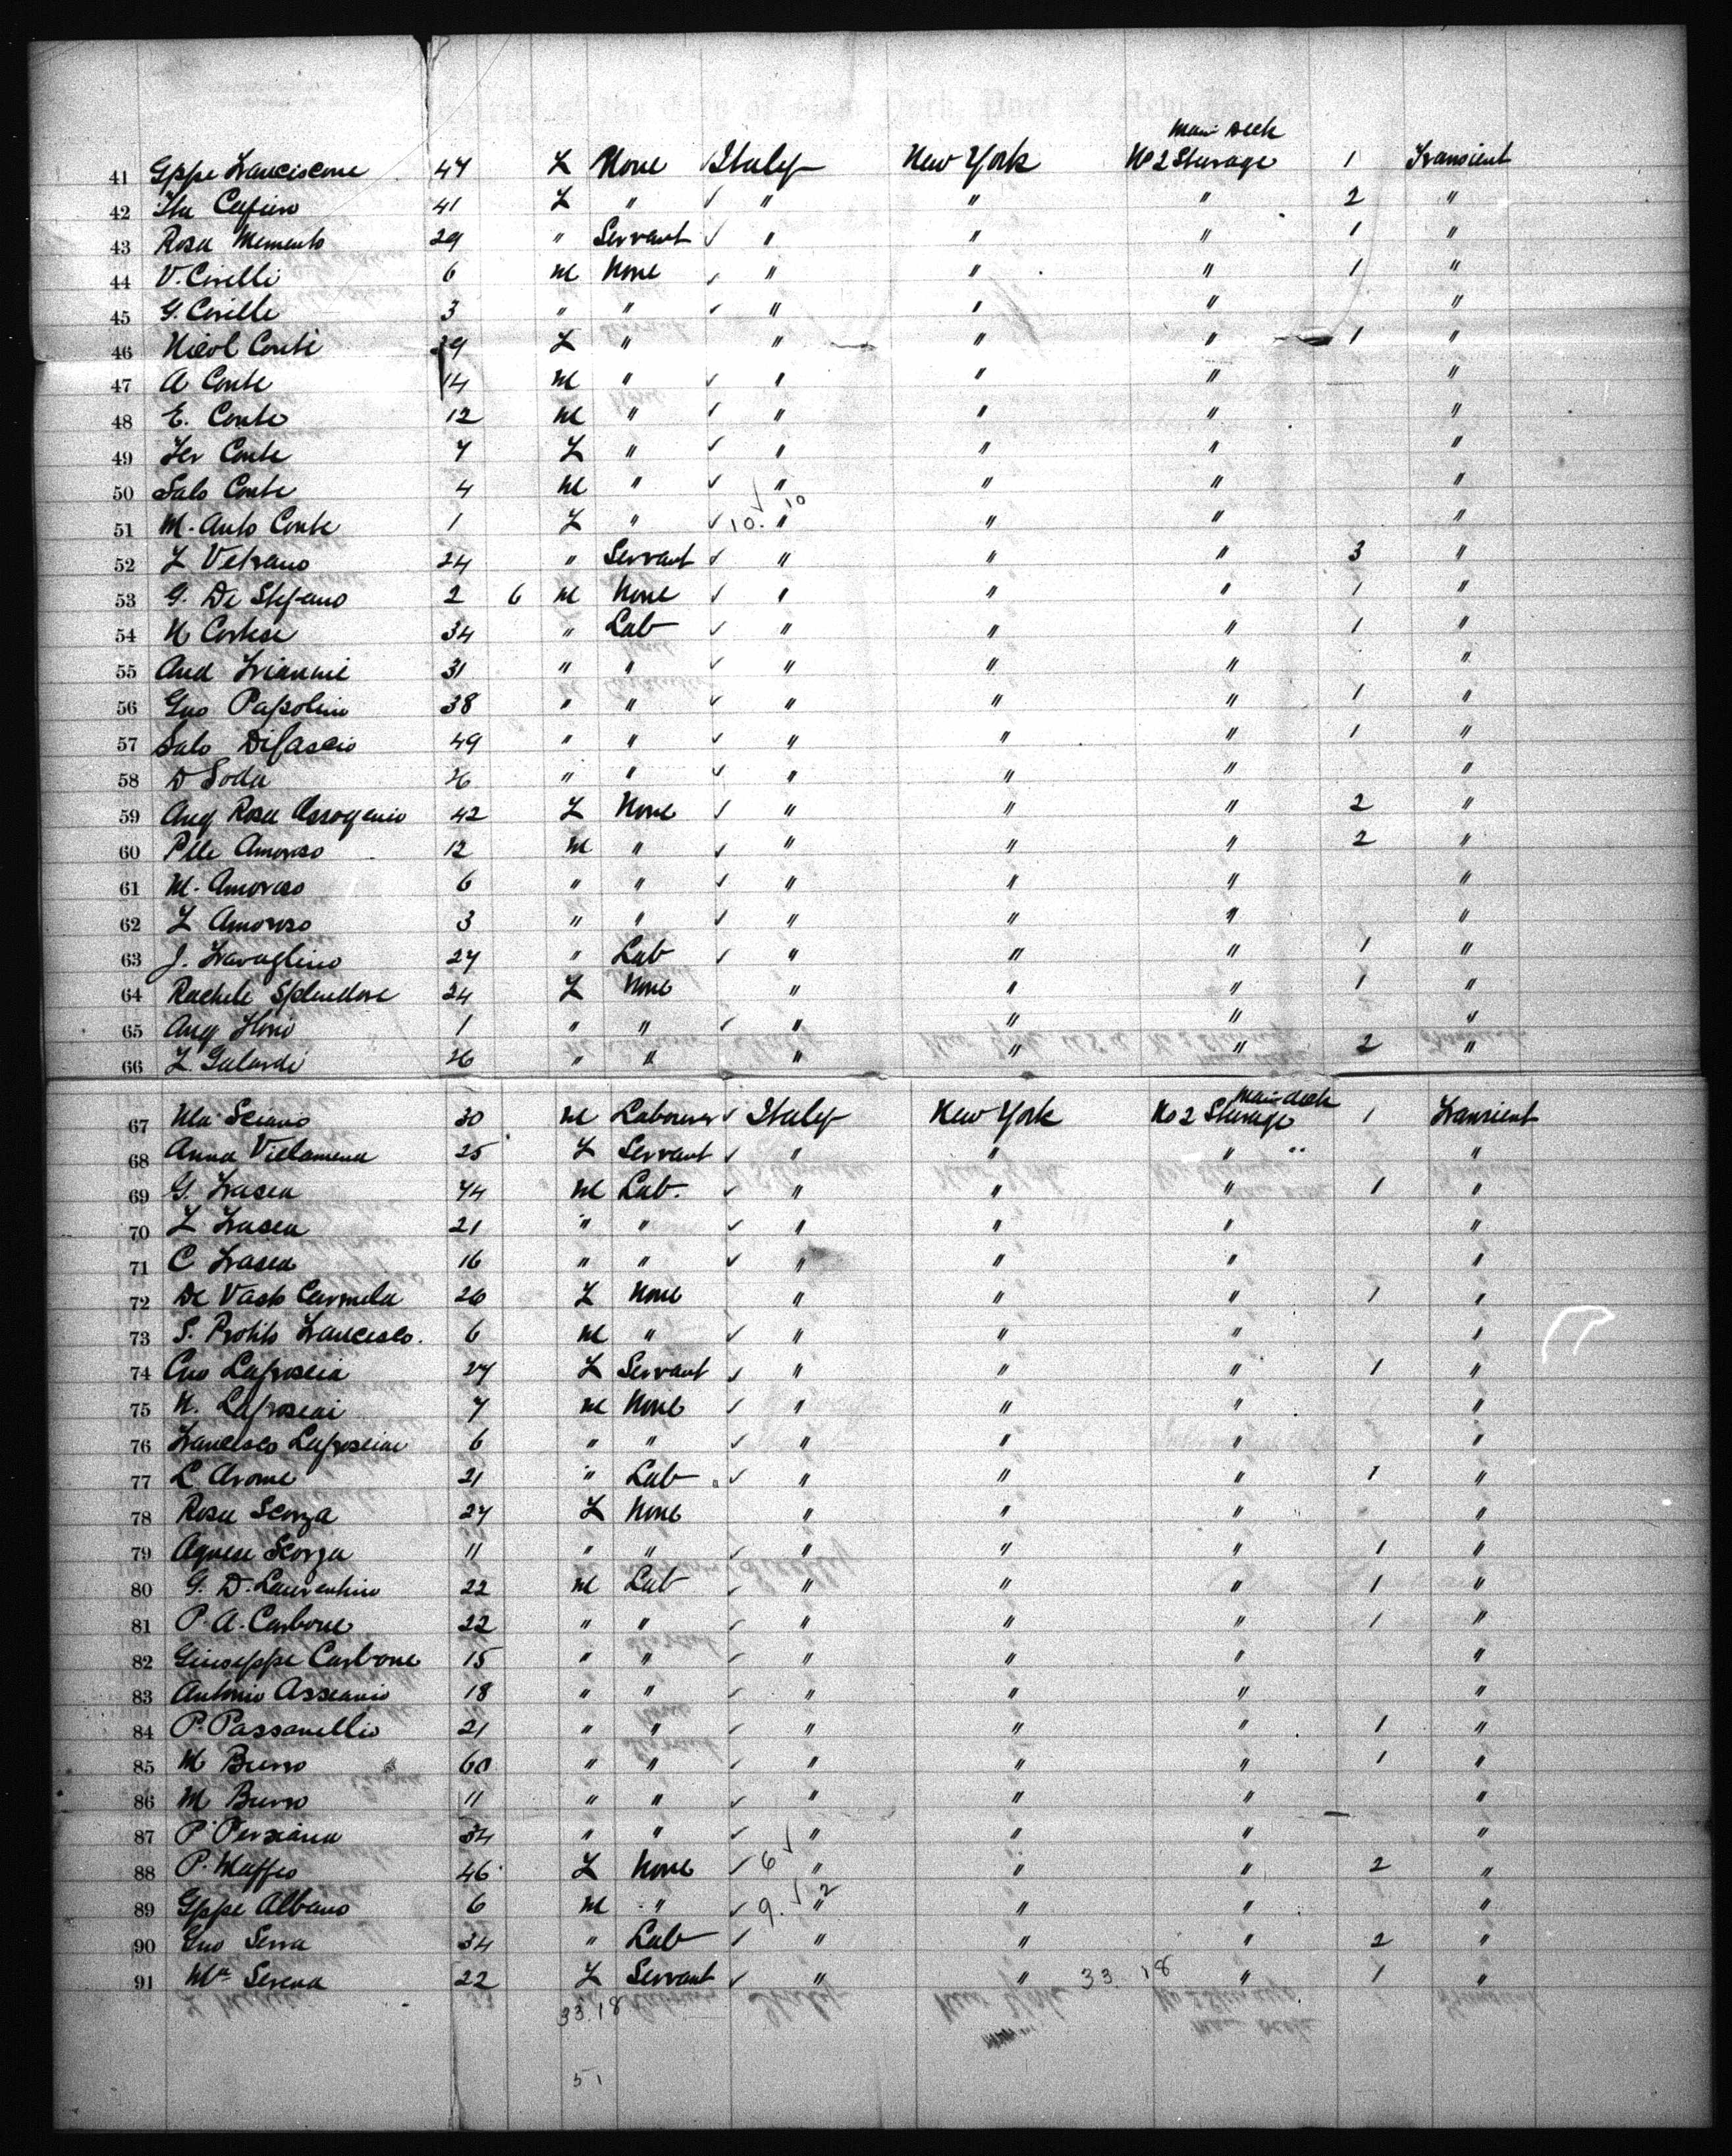 District of the City of New York, Port of New York
Main Deck
41 Gppe Franciscone 47 F None ✓ Italy New York No 2 Steerage 1 Transient
42 41 F " ✓ " " " 2 "
43 Rosa Memento 29 " Servant ✓ " " " 1 "
44 V. Cirelli 6 M None ✓ " " " 1 "
45 G. Cirelli 3 " " ✓ " " " "
46 Nicol Conte 39 F " " " " 1 "
47 A Conte 14 M " ✓ " " " "
48 E. Conte 12 M " ✓ " " " "
49 Fer Conte 7 F " ✓ " " " "
50 Salo Conte 4 M " ✓ " " " "
51 M. Anto Conte 1 F " ✓ 10. ✓ 10 " " " "
52 F Vetrano 24 " Servant ✓ " " " 3 "
53 G. De Stefano 2 6 M None ✓ " " " 1 "
54 N Cortese 34 " Lab ✓ " " " 1 "
55 And Friannie 31 " " ✓ " " " "
56 Gno Papolino 38 " " ✓ " " " 1 "
57 Salo Difascio 49 " " ✓ " " " 1 "
58 D Soda 26 " " ✓ " " " "
59 Ang Rosa 42 F None ✓ " " " 2 "
60 Plle Amoroso 12 M " ✓ " " " 2 "
61 M. Amoroso 6 " " ✓ " " " "
62 F Amoroso 3 " " ✓ " " " "
63 J. Fravaglino 27 " Lab ✓ " " " 1 "
64 Rachele Splendore 24 F None " " " 1 "
65 Ang Florio 1 " " ✓ " " " "
66 F. Galardi 26 " " " " " 2 "
Main deck
67 Sciano 30 M Labourer ✓ Italy New York No 2 Steerage 1 Transient
68 Anna Villamena 25 F Servant ✓ " " " "
69 G. Frasca 44 M Lab. ✓ " " " 1 "
70 F Frasca 21 " " ✓ " " " "
71 C Frasca 16 " " ✓ " " " "
72 De Vasto Carmela 26 F None " " " 1 "
73 S. Protito Francesco. 6 M " ✓ " " " "
74 Cno Laproscia 27 F Servant ✓ " " " 1 "
75 N. Laprosciai 7 M None ✓ " " " "
76 Francesco Laprosciai 6 " " ✓ " " " "
77 L Arome 21 " Lab ✓ " " " 1 "
78 Rosa Scorza 27 F None " " " "
79 Agnese Scorza 11 " " ✓ " " " 1 "
80 G. D. Laurentino 22 M Lab ✓ " " " 1 "
81 P. A. Carbone 22 " " ✓ " " " 1 "
82 Giuseppe Carbone 15 " " ✓ " " " "
83 Antonio Asscanio 18 " " ✓ " " " "
84 P. Passarellio 21 " " ✓ " " " 1 "
85 M Burro 60 " " ✓ " " " 1 "
86 M Burro 11 " " ✓ " " " "
87 P. Persiana 34 " " ✓ " " " "
88 P. Maffeo 46 F None ✓ 6 ✓ " " " 2 "
89 Gppe Albano 6 M " ✓ 9. ✓ 2 " " " "
90 Gno Serra 34 " Lab ✓ " " " 2 "
91 Ma Serena 22 F Servant ✓ " " 33 18 " 1 "
33.18
51